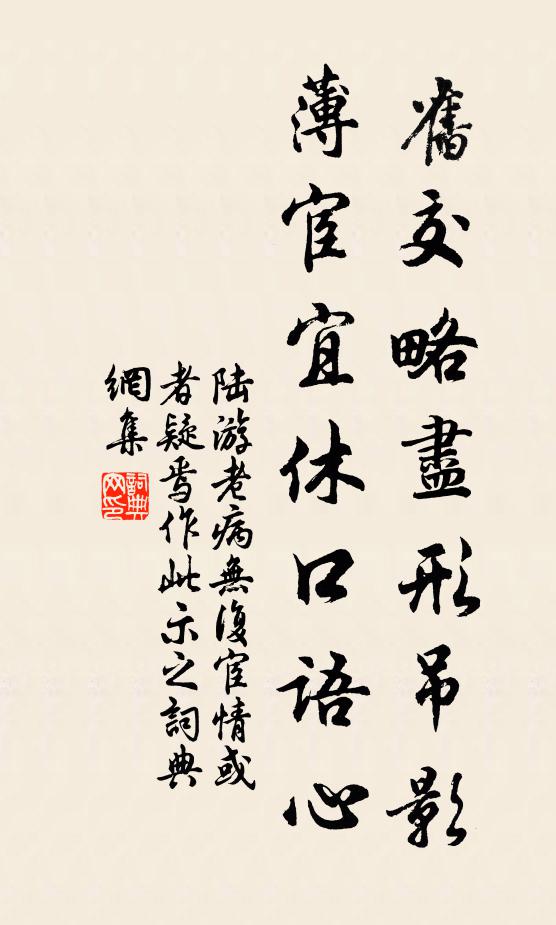 舊交略盡形吊影
薄宦宜休口語心
陆游老病無復宦情或
者疑焉作此示之詞典
網集
詞典網印